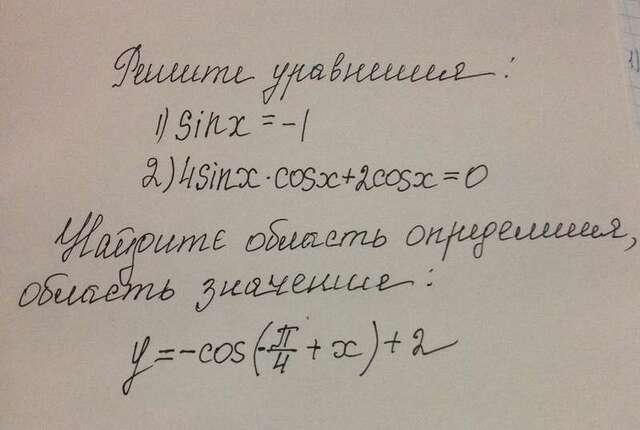 Решите уравнения:
1) sinx = -1
2) 4sinx·cosx+2cosx=0
Найдите область определения,
область значения:
y=-cos(-π/4 + x)+2